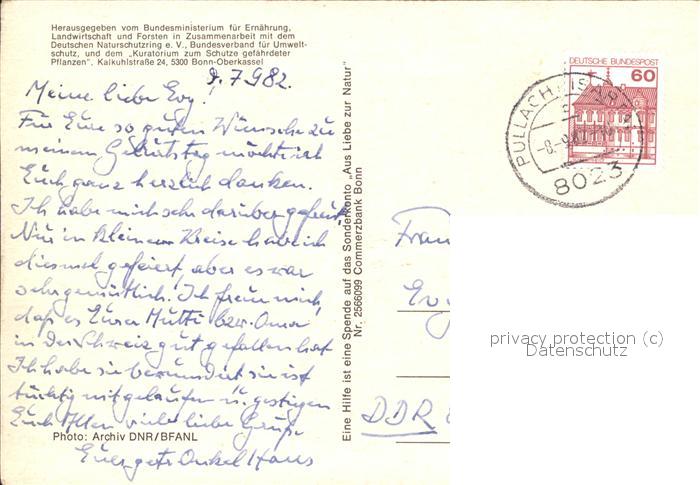 Herausgegeben vom Bundesministerium für Ernährung,
Landwirtschaft und Forsten in Zusammenarbeit mit dem
Deutschen Naturschutzring e. V., Bundesverband für Umwelt-
schutz, und dem „Kuratorium zum Schutze gefährdeter
Pflanzen". Kalkuhlstraße 24, 5300 Bonn-Oberkassel
9.7.982.
Meine liebe Evy!
Für Eure so guten Wünsche zu
meinem Geburtstag möchte ich
Euch ganz herzlich danken.
Ich habe mich sehr darüber gefreut
Nur in kleinem Kreise habe ich
diesmal gefeiert, aber es war
sehr gemütlich. Ich freue mich,
daß es Eurer Mutti bzw. Oma
in der Schweiz gut gefallen hat
Ich habe sie bewundert sie ist
tüchtig mitgelaufen u. gestiegen
Euch Allen viele liebe Grüße
Euer Onkel Hans
Photo: Archiv DNR/BFANL
Eine Hilfe ist eine Spende auf das Sonderkonto „Aus Liebe zur Natur"
Nr. 2566099 Commerzbank Bonn
DEUTSCHE BUNDESPOST
60
PULLACH
8023
Frau
Evy
DDR
privacy protection (c)
Datenschutz